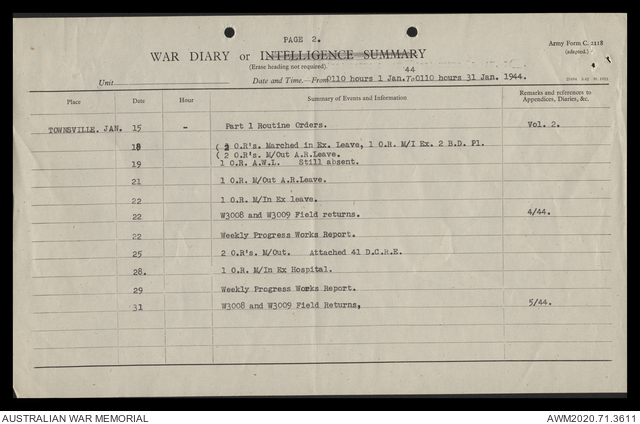 PAGE 2.
Army Form C. 2118
(adapted.)
WAR DIARY or INTELLIGENCE SUMMARY
(Erase heading not required).
Unit
44
Date and Time.—From 0110 hours 1 Jan. To 0110 hours 31 Jan. 1944.
Place Date Hour Summary of Events and Information Remarks and references to Appendices, Diaries, &c.
TOWNSVILLE. JAN. 15 - Part 1 Routine Orders. Vol. 2.
18 ( 2 O.R's. Marched in Ex. Leave, 1 O.R. M/I Ex. 2 B.D. Pl.
( 2 O.R's. M/Out A.R.Leave.
19 1 O.R. A.W.L. Still absent.
21 1 O.R. M/Out A.R.Leave.
22 1 O.R. M/In Ex leave.
22 W3008 and W3009 Field returns. 4/44.
22 Weekly Progress Works Report.
25 2 O.R's. M/Out. Attached 41 D.C.R.E.
28. 1 O.R. M/In Ex Hospital.
29 Weekly Progress Works Report.
31 W3008 and W3009 Field Returns, 5/44.
AUSTRALIAN WAR MEMORIAL AWM2020.71.3611